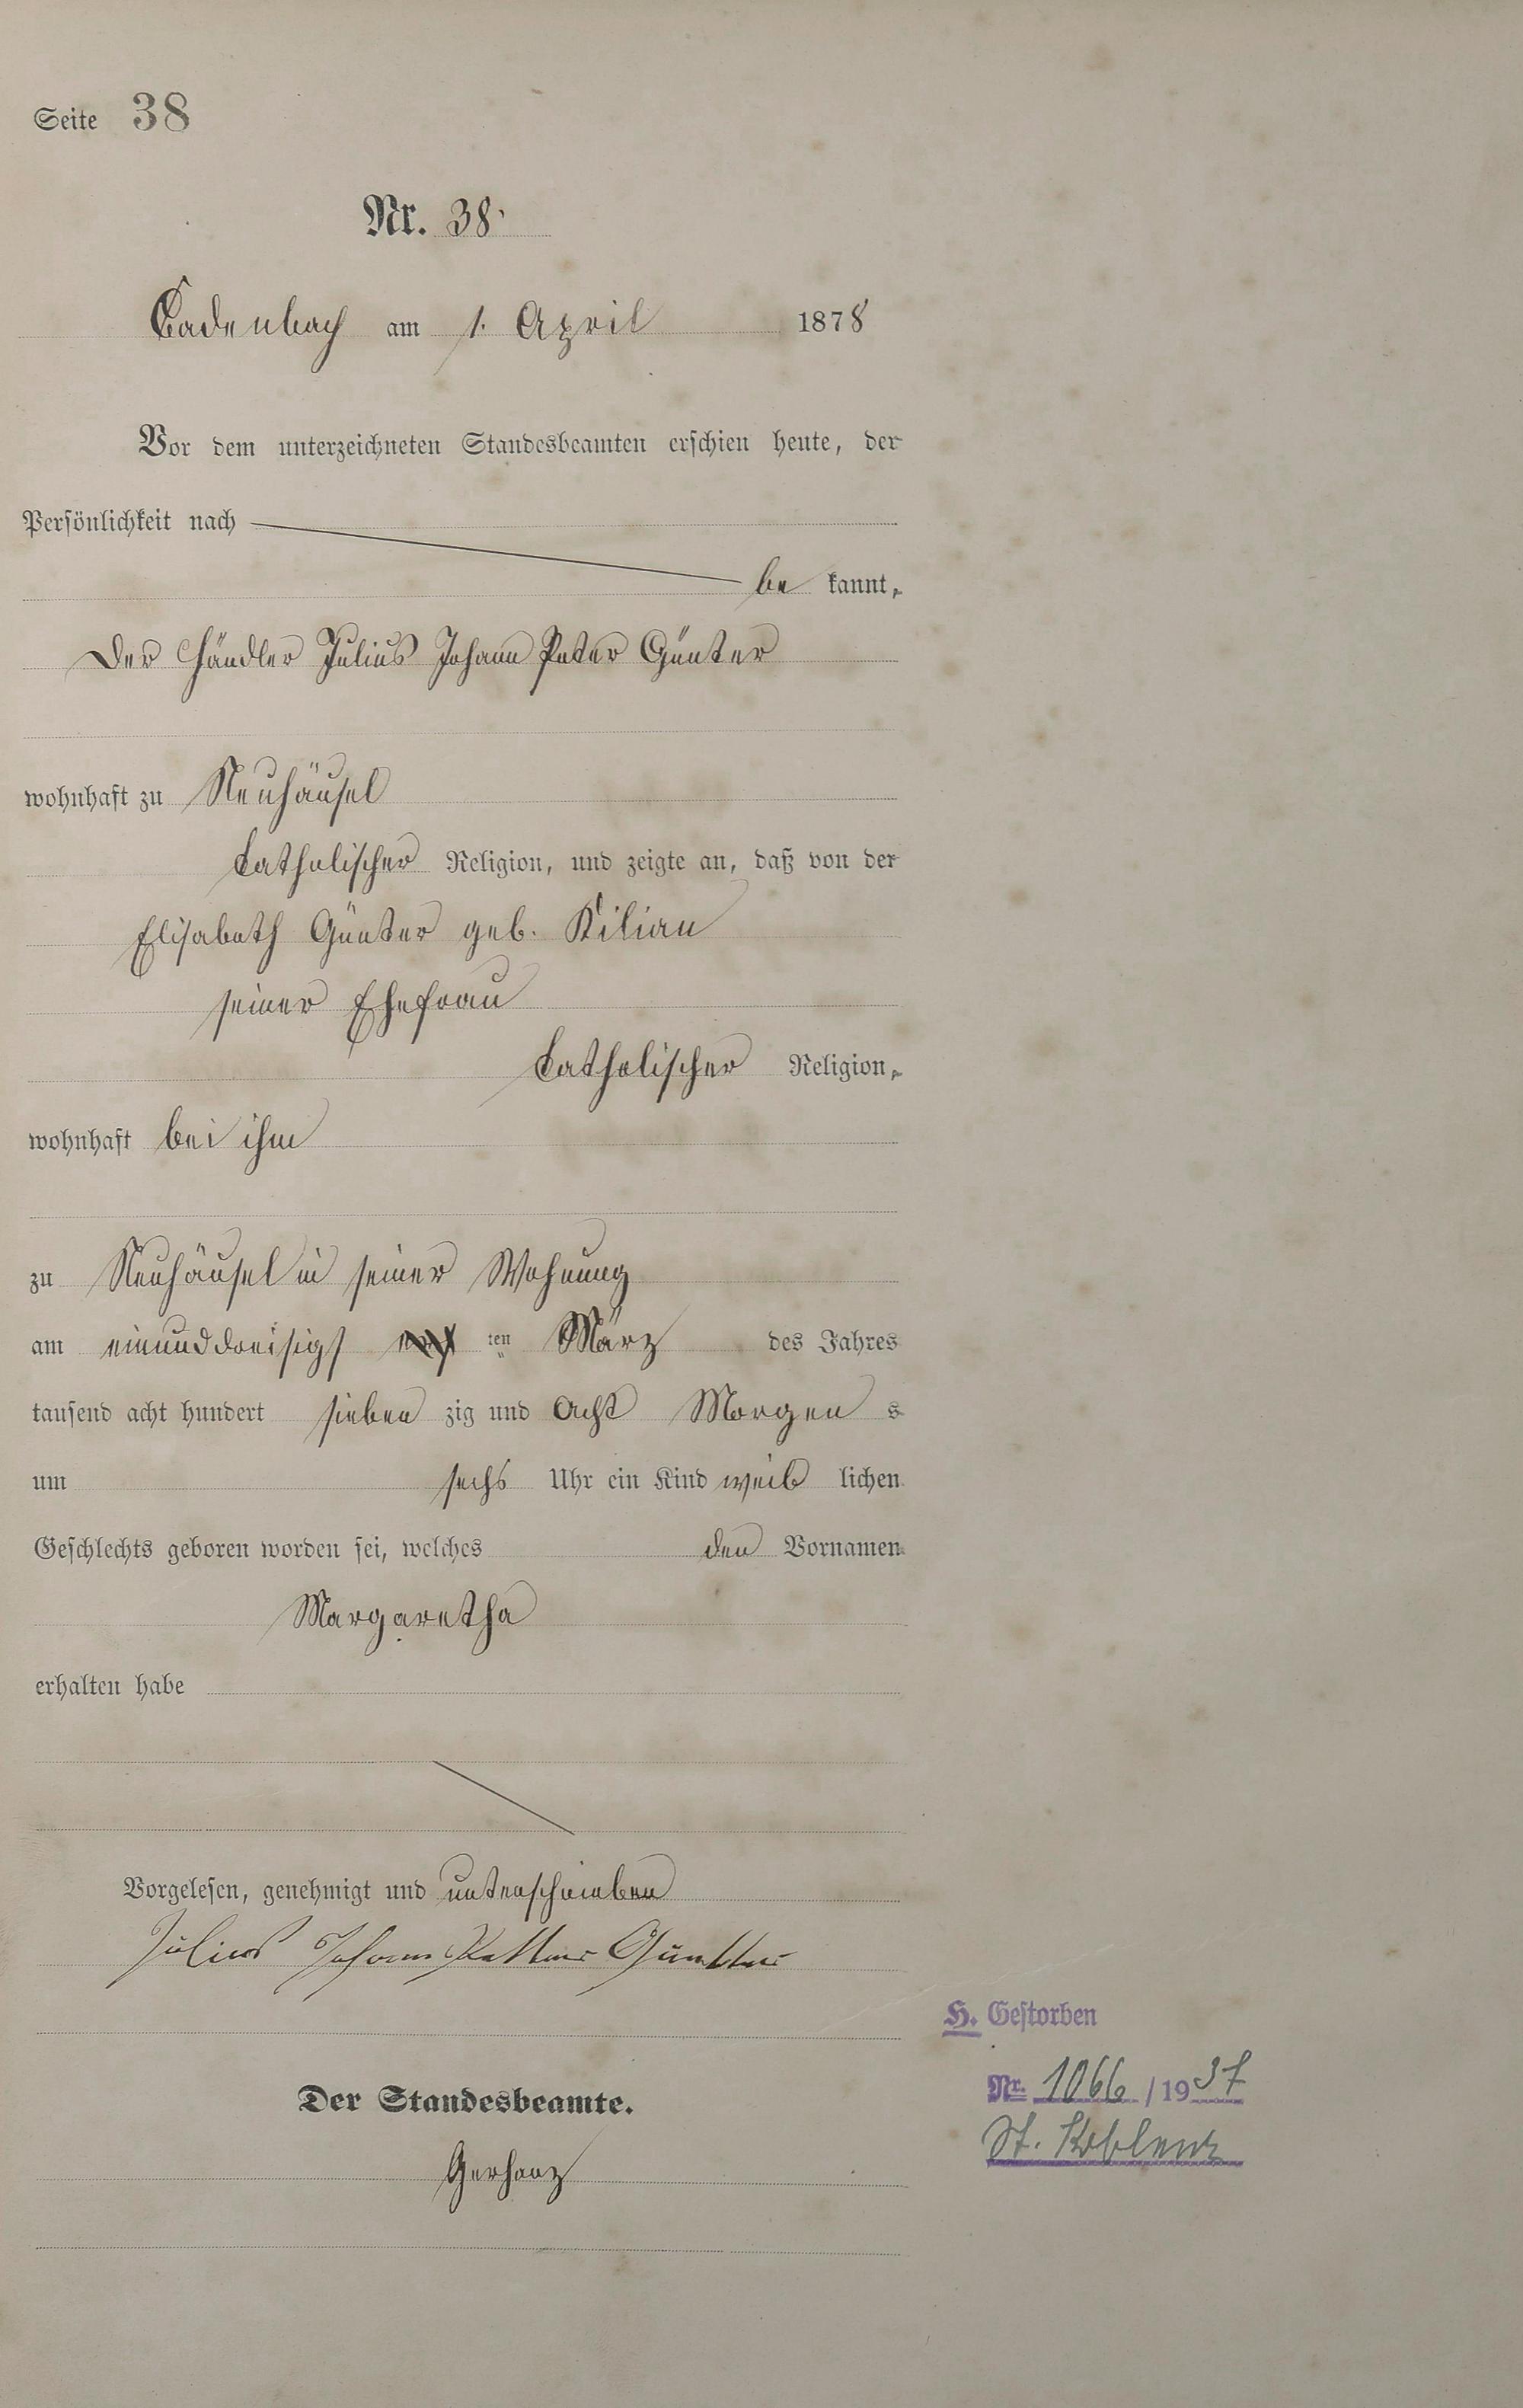 Seite 38
Nr. 38.
Cadenbach am 1. April 1878
Vor dem unterzeichneten Standesbeamten erschien heute, der
Persönlichkeit nach
be kannt,
der Händler Julius Johann Peter Günter
wohnhaft zu Neuhäusel
katholischer Religion, und zeigte an, daß von der
Elisabeth Günter geb. Kilian
seiner Ehefrau
katholischer Religion,
wohnhaft bei ihm
zu Neuhäusel in seiner Wohnung
am einunddreisigs ten März des Jahres
tausend acht hundert sieben zig und acht Morgen s
um sechs Uhr ein Kind weib lichen
Geschlechts geboren worden sei, welches den Vornamen
Margaretha
erhalten habe
Vorgelesen, genehmigt und unterschrieben
Julius Johann Günther
Der Standesbeamte.
Gerharz
H. Gestorben
Nr. 1066 / 1937
St. Koblenz